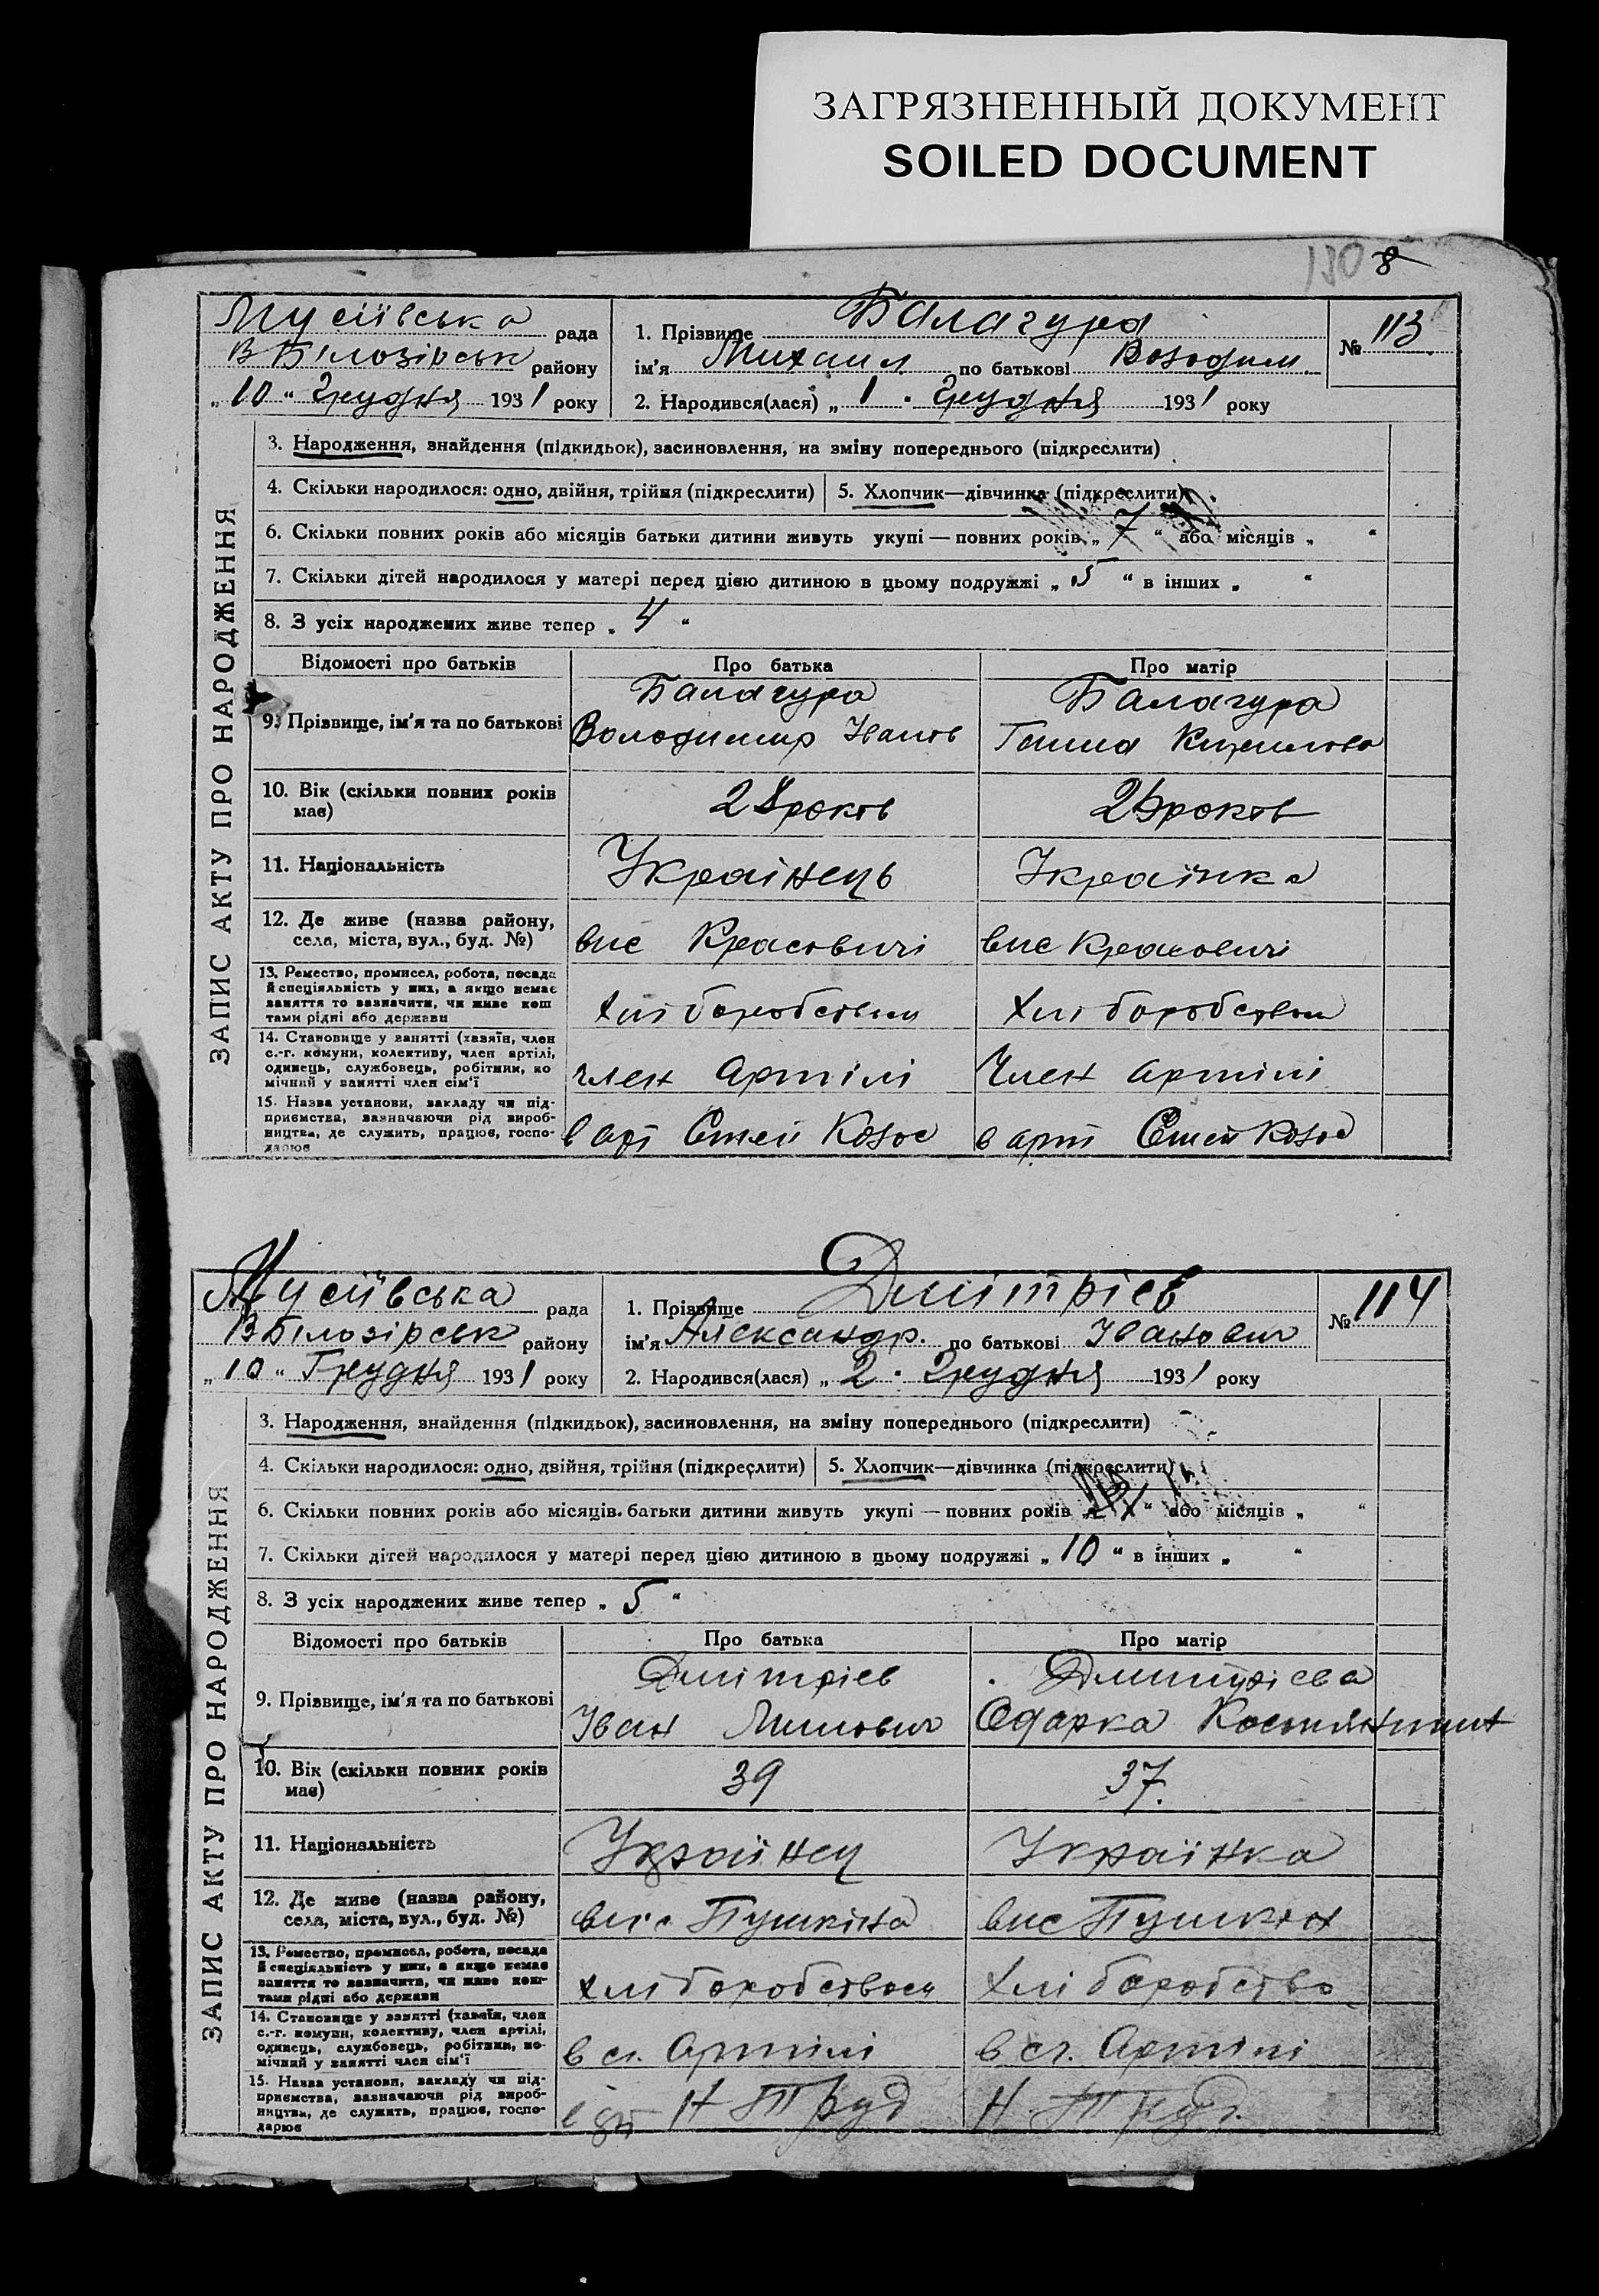 ЗАГРЯЗНЕННЫЙ ДОКУМЕНТ
SOILED DOCUMENT
130 8
Мусіївська рада
В Білозірськ району
„ 10 “ Грудня 1931 року
1. Прізвище Балагура
ім'я Михаил по батькові Володим.
2. Народився(лася) „ 1 “ Грудня 1931 року
№ 113
ЗАПИС АКТУ ПРО НАРОДЖЕННЯ
3. Народження, знайдення (підкидьок), засиновлення, на зміну попереднього (підкреслити)
4. Скільки народилося: одно, двійня, трійня (підкреслити) 5. Хлопчик—дівчинка (підкреслити)
6. Скільки повних років або місяців батьки дитини живуть укупі — повних років „ 7 “ або місяців „ “
7. Скільки дітей народилося у матері перед цією дитиною в цьому подружжі „ 5 “ в інших „ “
8. З усіх народжених живе тепер „ 4 “
Відомості про батьків Про батька Про матір
9. Прізвище, ім'я та по батькові
Балагура
Володимир Іванов
Балагура
Ганна
10. Вік (скільки повних років має)
28 років
років
11. Національність
Українець
Українка
12. Де живе (назва району, села, міста, вул., буд. №)
вис Красовичі
вис Красовичі
13. Ремество, промисел, робота, посада й спеціяльність у них, а якщо немає заняття то зазначити, чи живе коштами рідні або держави
хліборобством
хліборобством
14. Становище у занятті (хазяїн, член с.-г. комуни, колективу, член артілі, одинець, службовець, робітник, комічний у занятті член сім'ї
член Артілі
Член артілі
15. Назва установи, закладу чи підприємства, зазначаючи рід виробництва, де служить, працює, господарює
в арт
в арт
Мусіївська рада
В Білозірськ району
„ 10 “ Грудня 1931 року
1. Прізвище Дмітріев
ім'я Александр. по батькові Іванович
2. Народився(лася) „ 2 “ Грудня 1931 року
№ 114
ЗАПИС АКТУ ПРО НАРОДЖЕННЯ
3. Народження, знайдення (підкидьок), засиновлення, на зміну попереднього (підкреслити)
4. Скільки народилося: одно, двійня, трійня (підкреслити) 5. Хлопчик—дівчинка (підкреслити)
6. Скільки повних років або місяців батьки дитини живуть укупі — повних років „ “ або місяців „ “
7. Скільки дітей народилося у матері перед цією дитиною в цьому подружжі „ 10 “ в інших „ “
8. З усіх народжених живе тепер „ 5 “
Відомості про батьків Про батька Про матір
9. Прізвище, ім'я та по батькові
Дмітріев
Іван
Дмитрієва
Одарка Костянтинт
10. Вік (скільки повних років має)
39
37.
11. Національність
Українец
Українка
12. Де живе (назва району, села, міста, вул., буд. №)
вис Пушкіна
вис Пушкін
13. Ремество, промисел, робота, посада й спеціяльність у них, а якщо немає заняття то зазначити, чи живе коштами рідні або держави
хліборобством
хліборобство
14. Становище у занятті (хазяїн, член с.-г. комуни, колективу, член артілі, одинець, службовець, робітник, комічний у занятті член сім'ї
в сг. Артілі
в сг. Артілі
15. Назва установи, закладу чи підприємства, зазначаючи рід виробництва, де служить, працює, господарює
Н Труд
Н Труд.